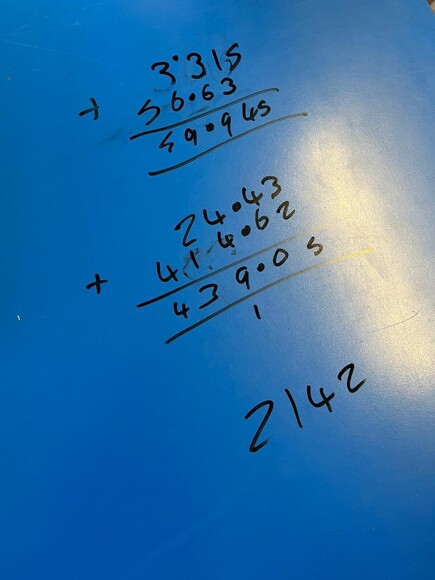 3.315
+ 56.63
59.945
24.43
+ 414.62
439.05
1
2142